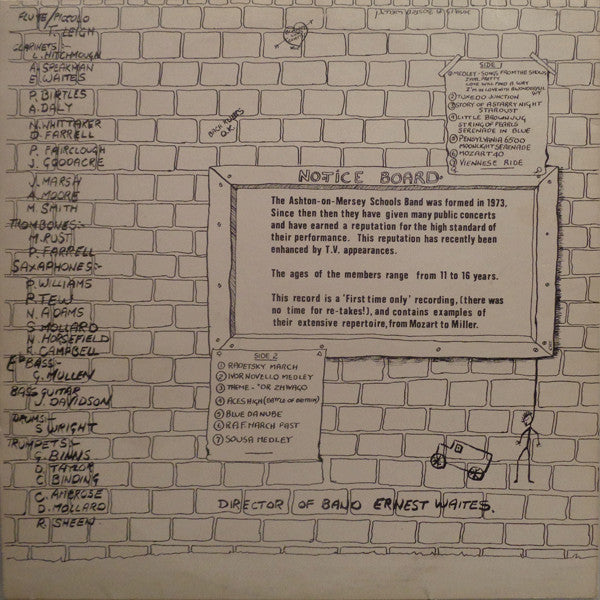 FLUTE/PICCOLO
T. LEIGH
CLARINETS:-
L. HITCHMOUGH
A. SPEAKMAN
E. WAITES
P. BIRTLES
A. DALY
N. WHITTAKER
D. FARRELL
P. FAIRCLOUGH
J. GOODACRE
J. MARSH
A. MOORE
M. SMITH
TROMBONES:-
M. RUST
D. FARRELL
SAXAPHONES:-
P. WILLIAMS
P. TEW
N. ADAMS
S. MOLLARD
N. HORSEFIELD
R. CAMPBELL
Eb BASS:-
G. MULLEN
BASS GUITAR
J. DAVIDSON
DRUMS:-
S. WRIGHT
TRUMPETS:-
G. BINNS
D. TAYLOR
C. BINDING
C. AMBROSE
D. MOLLARD
R. SHEEN
BACH RULES
O.K.
SIDE 1
① MEDLEY - SONGS FROM THE SHOWS
LOVE WILL FIND A WAY
I'M IN LOVE WITH A WONDERFUL
GUY
② TUXEDO JUNCTION
③ STORY OF A STARRY NIGHT
STARDUST
④ LITTLE BROWN JUG
STRING OF PEARLS
SERENADE IN BLUE
⑤ PENSYLVANIA 6500
MOONLIGHT SERENADE
⑥ MOZART 40
⑦ VIENNESE RIDE
NOTICE BOARD
The Ashton-on-Mersey Schools Band was formed in 1973,
Since then then they have given many public concerts
and have earned a reputation for the high standard of
their performance. This reputation has recently been
enhanced by T.V. appearances.
The ages of the members range from 11 to 16 years.
This record is a 'First time only' recording, (there was
no time for re-takes!), and contains examples of
their extensive repertoire, from Mozart to Miller.
SIDE 2
① RADETSKY MARCH
② IVOR NOVELLO MEDLEY
③ THEME - "DR ZHIVAGO
④ ACES HIGH (BATTLE OF BRITAIN)
⑤ BLUE DANUBE
⑥ R.A.F. MARCH PAST
⑦ SOUSA MEDLEY
DIRECTOR OF BAND ERNEST WAITES.